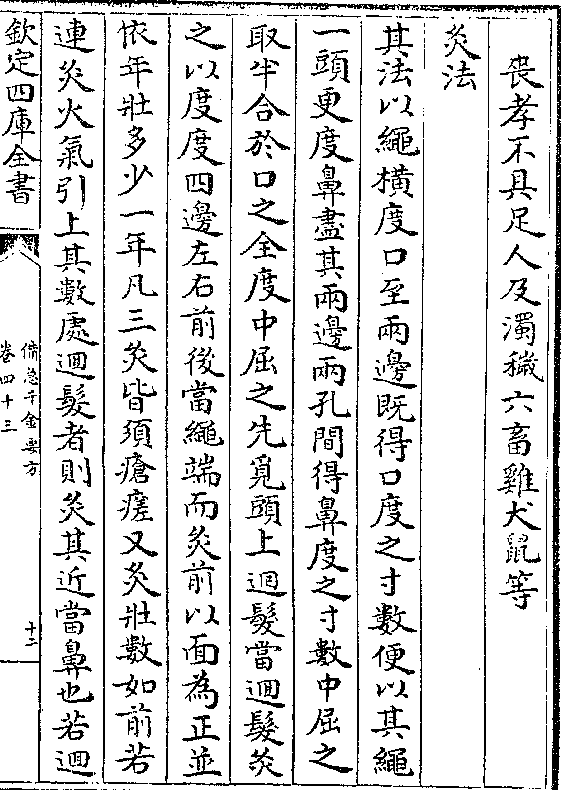 喪孝不具足人及濁穢六畜雞犬鼠等
灸法
其法以繩橫度口至兩邊既得口度之寸數便以其繩
一頭更度鼻盡其兩邊兩孔間得鼻度之寸數中屈之
取半合於口之全度中屈之先覓頭上迴髮當迴髮灸
之以度度四邊左右前後當繩端而灸前以面為正並
依年壯多少一年凡三灸皆須瘡瘥又灸壯數如前若
連灸火氣引上其數處迴髮者則灸其近當鼻也若迴
欽定四庫全書
備急千金要方
卷四十三
十二